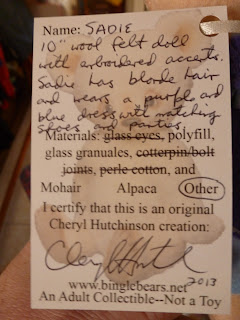 Name: SADIE
10" wool felt doll
with embroidered accents.
Sadie has blonde hair
and wears a purple and
blue dress with matching
shoes and panties
Materials: glass eyes, polyfill,
glass granuales, cotterpin/bolt
joints, perle cotton, and
Mohair Alpaca Other
I certify that this is an original
Cheryl Hutchinson creation:
2013
www.binglebears.net
An Adult Collectible--Not a Toy